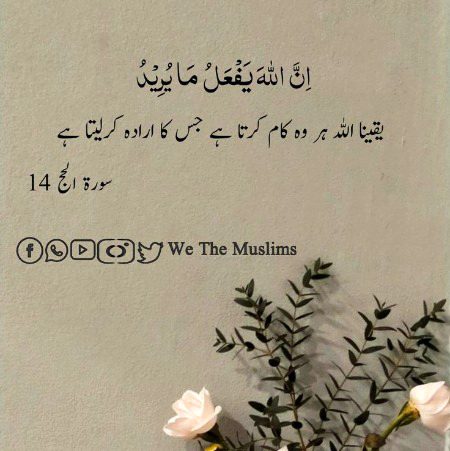 اِنَّ اللهَ يَفْعَلُ مَا يُرِيْدُ
یقینا اللہ ہر وہ کام کرتا ہے جس کا ارادہ کرلیتا ہے
سورۃ الحج 14
We The Muslims